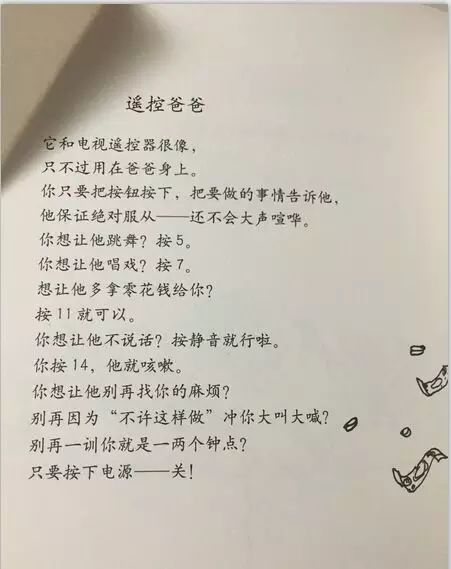 遥控爸爸
它和电视遥控器很像，
只不过用在爸爸身上。
你只要把按钮按下，把要做的事情告诉他，
他保证绝对服从——还不会大声喧哗。
你想让他跳舞？按5。
你想让他唱戏？按7。
想让他多拿零花钱给你？
按11就可以。
你想让他不说话？按静音就行啦。
你按14，他就咳嗽。
你想让他别再找你的麻烦？
别再因为“不许这样做”冲你大叫大喊？
别再一训你就是一两个钟点？
只要按下电源——关！